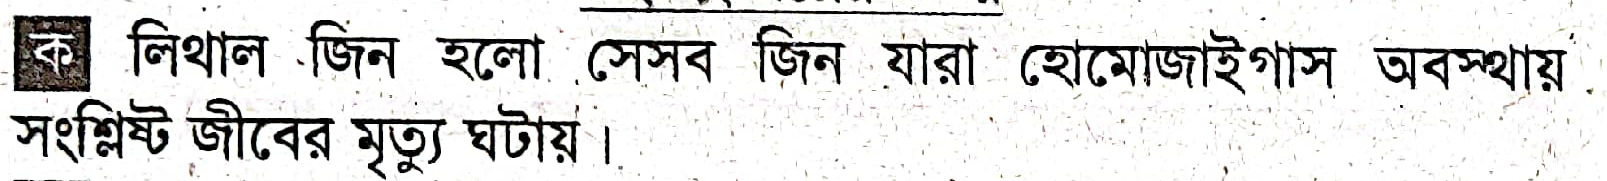 ক লিথাল জিন হলো সেসব জিন যারা হোমোজাইগাস অবস্থায়
সংশ্লিষ্ট জীবের মৃত্যু ঘটায়।